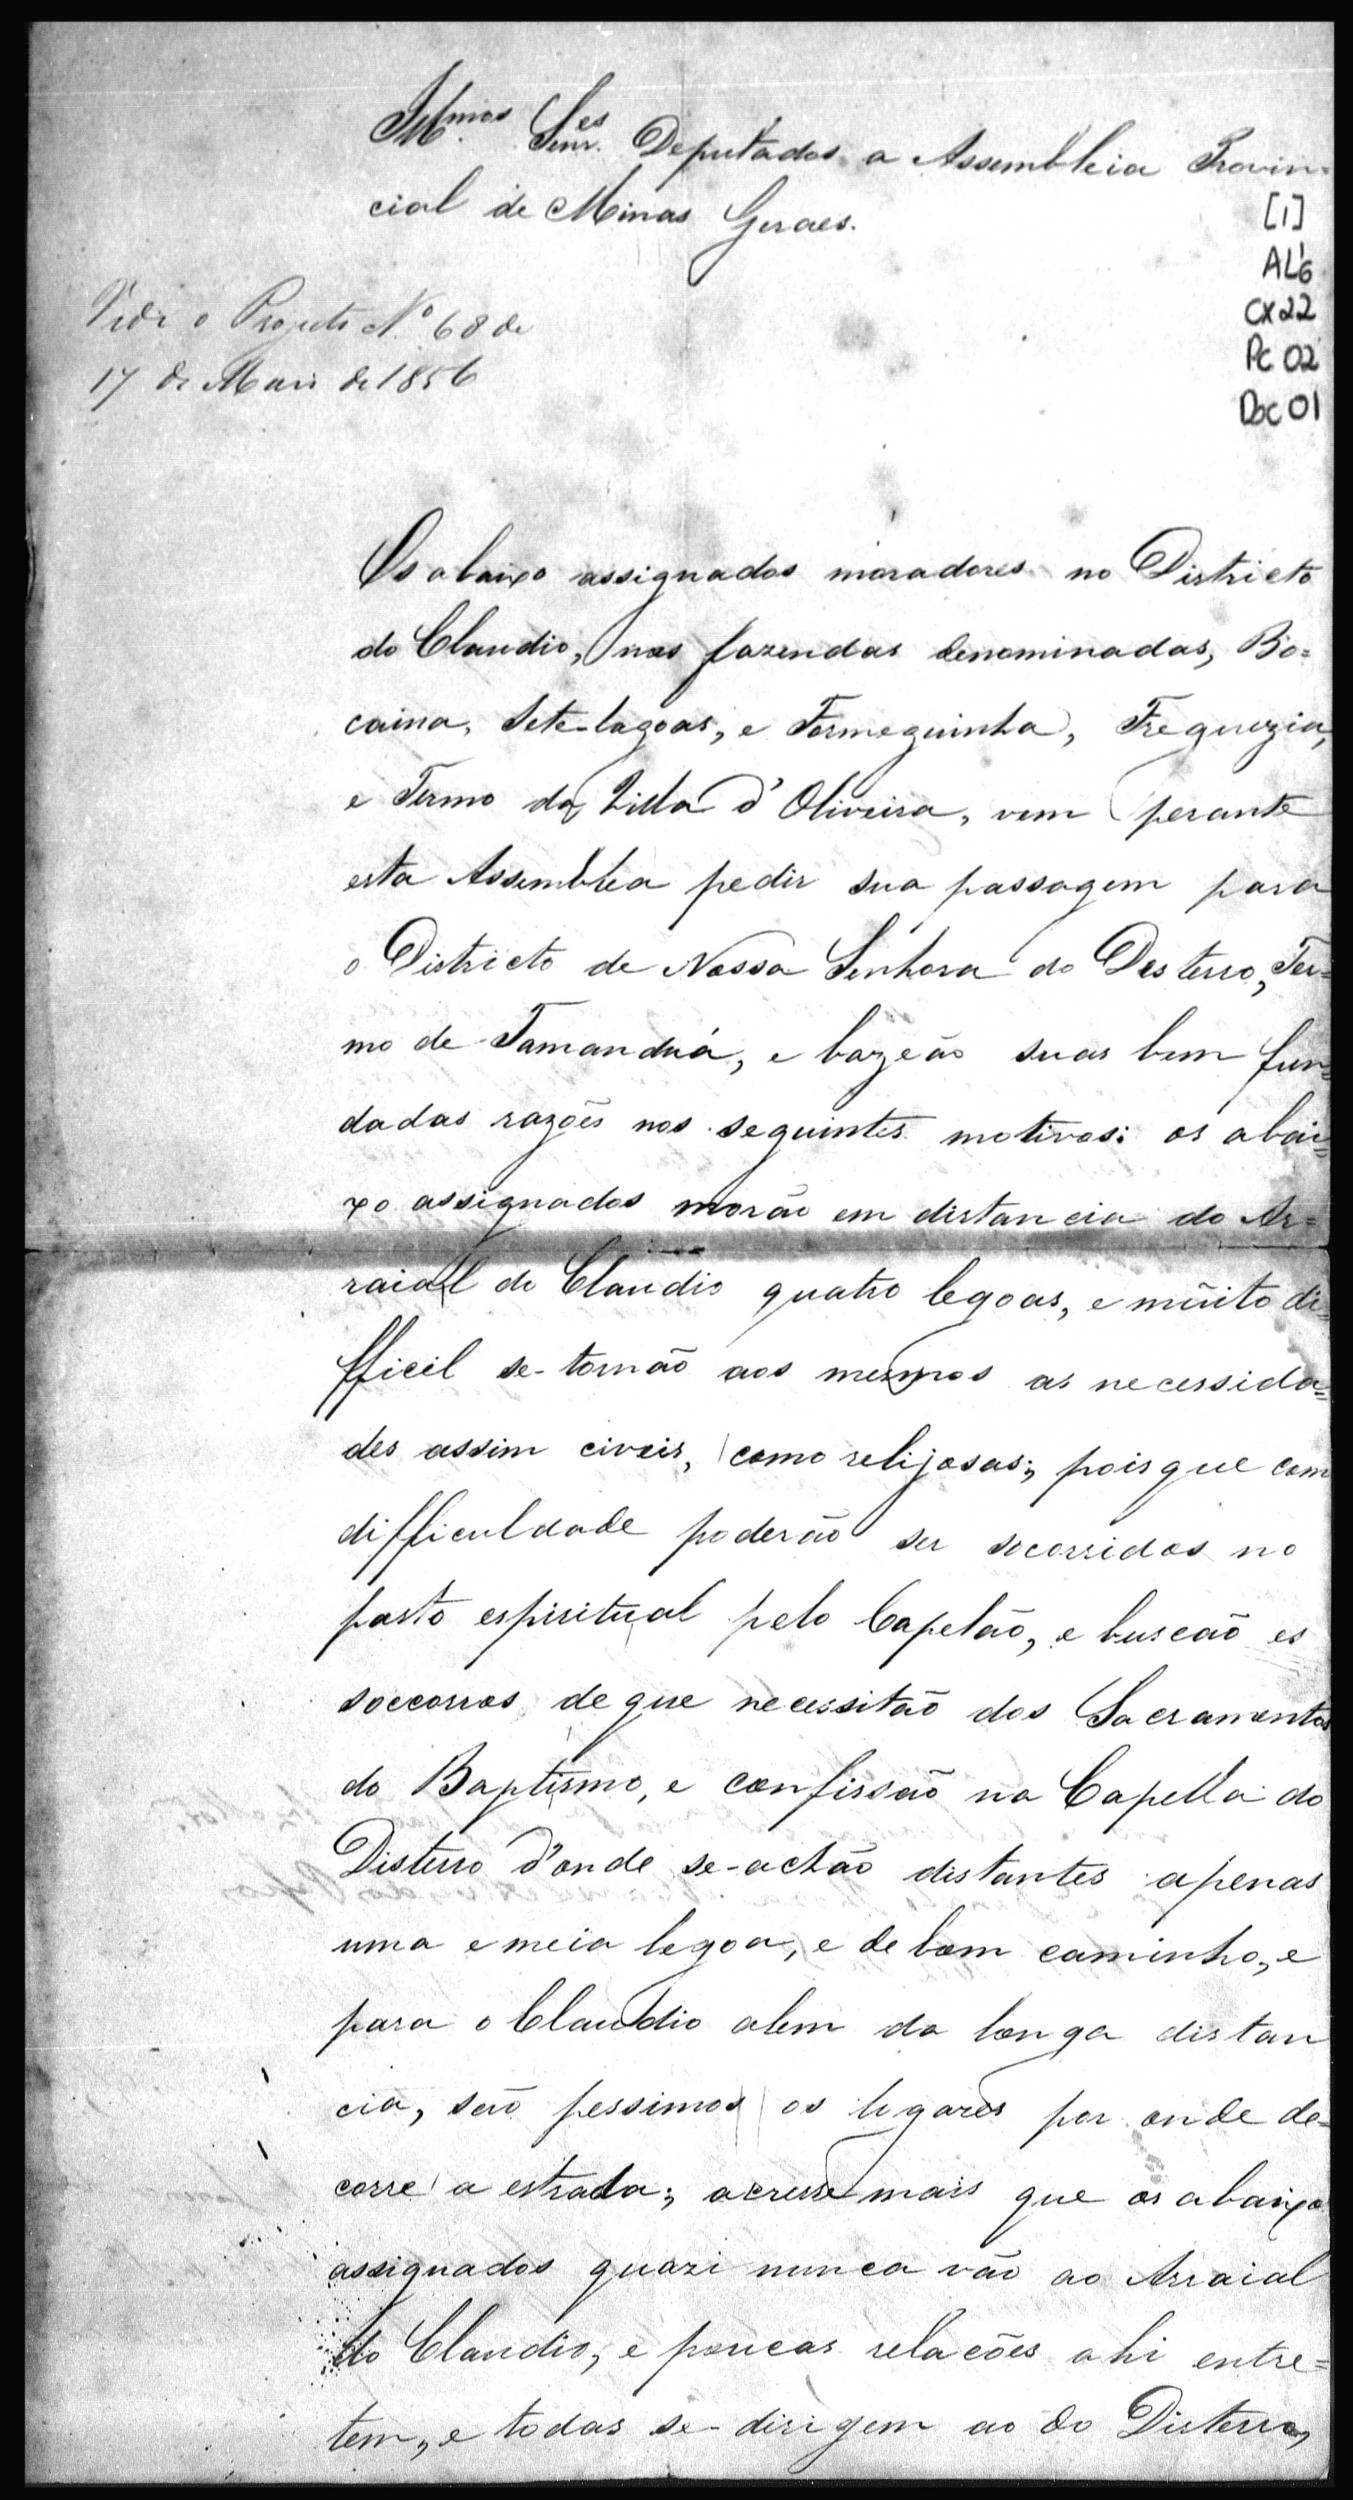 Illmos Senres Deputados a Assembleia Provin=
cial de Minas Geraes.
[1]
AL 6
CX 22
Pc 02
Doc 01
Vide o Projecto No. 68 de
17 de Maio de 1856
Os abaixo assignados moradores no Districto
do Claudio, nas fazendas denominadas, Bo=
caina, Sete-lagoas, e Formeguinha, Freguezia,
e Termo da Villa d'Oliveira, vem perante
esta Assemblea pedir sua passagem para
o Districto de Nossa Senhora do Desterro, Ter=
mo de Tamanduá, e bazeão suas bem fun=
dadas razões nos seguintes motivos: os abai=
xo assignados morão em distancia do Ar=
raial do Claudio quatro legoas, e mũito di=
fficil se-tornão aos mesmos as necessida=
des assim civeis, como relijosas; pois que com
difficuldade poderão ser socorridos no
pasto espiritual pelo Capelão, e buscão os
soccorros de que necessitão dos Sacramentos
do Baptismo, e confissão na Capella do
Disterro d'onde se-achão distantes apenas
uma e meia legoa, e de bom caminho, e
para o Claudio alem da longa distan
cia, são pessimos os lugares por onde de=
corre a estrada; acresse mais que os abaixo
assignados quazi nunca vão ao Arraial
do Claudio, e poucas relacões ahi entre=
tem, e todas se-dirigem ao do Disterro,